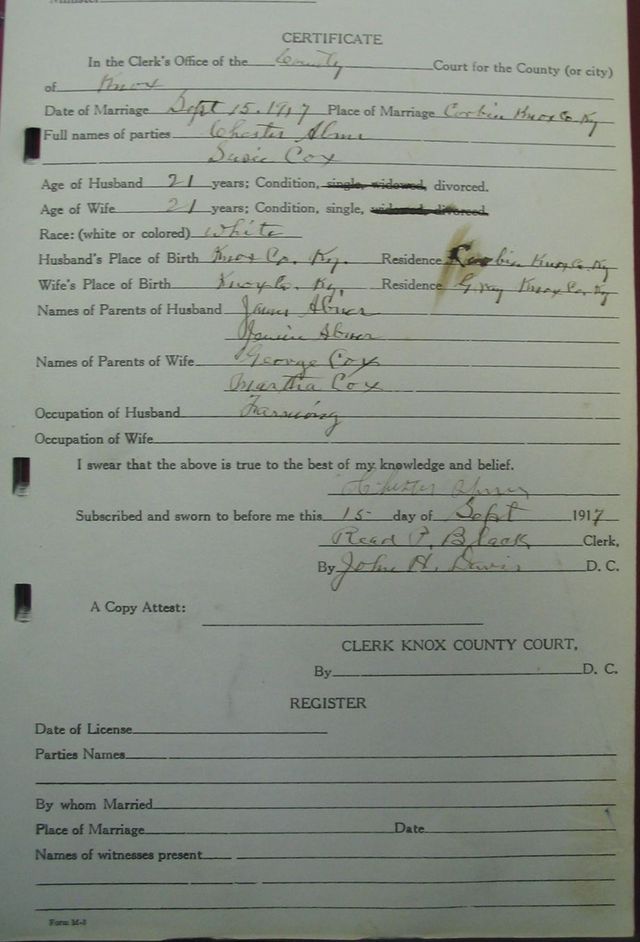 CERTIFICATE
In the Clerk's Office of the County Court for the County (or city)
of Knox
Date of Marriage Sept 15, 1917 Place of Marriage Corbin Knox Co Ky
Full names of parties Chester
Susie Cox
Age of Husband 21 years; Condition, single, widowed, divorced.
Age of Wife 21 years; Condition, single, widowed, divorced.
Race: (white or colored) White
Husband's Place of Birth Knox Co. Ky. Residence Corbin Knox Co. Ky
Wife's Place of Birth Knox Co. Ky. Residence Gray Knox Co. Ky
Names of Parents of Husband James Abner
Abner
Names of Parents of Wife George Cox
Martha Cox
Occupation of Husband Farming
Occupation of Wife
I swear that the above is true to the best of my knowledge and belief.
Chester
Subscribed and sworn to before me this 15 day of Sept 1917
Read P. Black Clerk,
By John H. Davis D. C.
A Copy Attest:
CLERK KNOX COUNTY COURT,
By D. C.
REGISTER
Date of License
Parties Names
By whom Married
Place of Marriage Date
Names of witnesses present
Form M-3